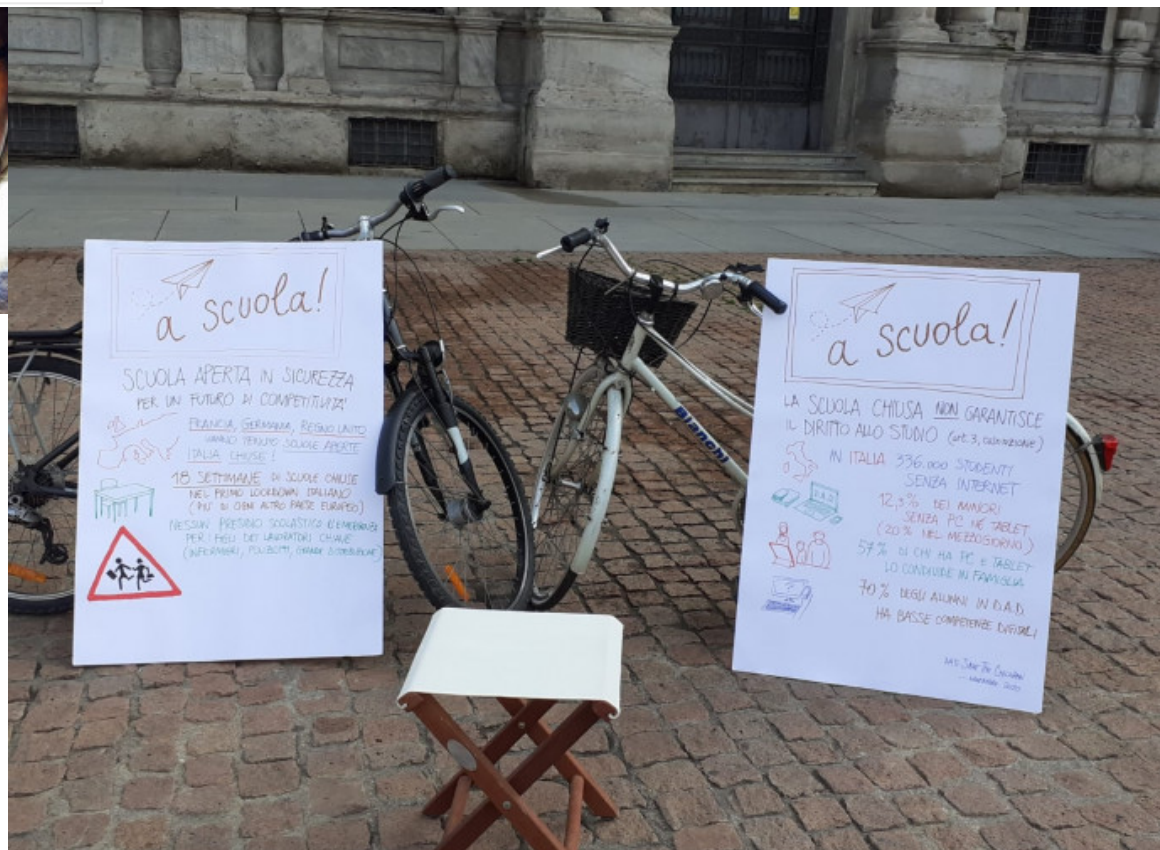 a scuola!
SCUOLA APERTA IN SICUREZZA
PER UN FUTURO DI COMPETITIVITA'
FRANCIA, GERMANIA, REGNO UNITO
HANNO TENUTO SCUOLE APERTE
ITALIA CHIUSE!
18 SETTIMANE DI SCUOLE CHIUSE
NEL PRIMO LOCKDOWN ITALIANO
(PIU' DI OGNI ALTRO PAESE EUROPEO)
NESSUN PRESIDIO SCOLASTICO D'EMERGENZA
PER I FIGLI DEI LAVORATORI CHIAVE
(INFERMIERI, POLIZIOTTI, GRANDE DISTRIBUZIONE)
Bianchi
a scuola!
LA SCUOLA CHIUSA NON GARANTISCE
IL DIRITTO ALLO STUDIO (art. 3, costituzione)
IN ITALIA 336.000 STUDENTI
SENZA INTERNET
D.A.D.
12,3% DEI MINORI
SENZA PC NÉ TABLET
(20% NEL MEZZOGIORNO)
57% DI CHI HA PC E TABLET
LO CONDIVIDE IN FAMIGLIA
70% DEGLI ALUNNI IN D.A.D.
HA BASSE COMPETENZE DIGITALI
SAVE THE CHILDREN
2020